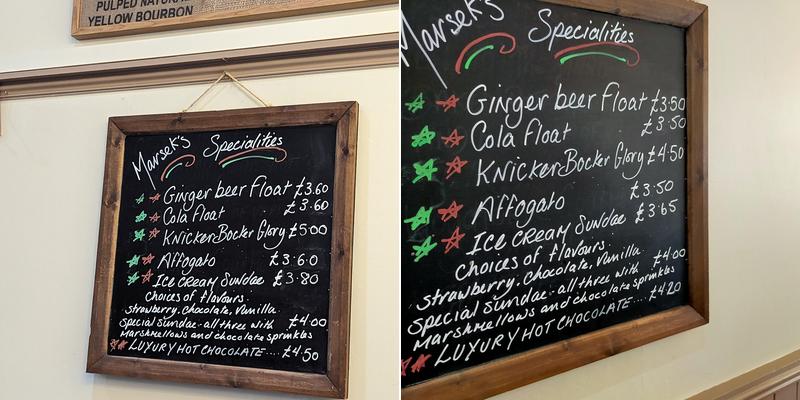 PULPED NATURAL
YELLOW BOURBON
Marsek's Specialities
Ginger beer Float £3.60
Cola float £3.60
KnickerBocker Glory £5.00
Affogato £3.60
Ice cream Sundae £3.80
Choices of flavours.
strawberry. Chocolate, Vanilla.
Special sundae. all three with £4.00
Marshmellows and chocolate sprinkles
LUXURY HOT CHOCOLATE.... £4.50
Marsek's Specialities
Ginger beer Float £3.50
Cola float £3.50
KnickerBocker Glory £4.50
Affogato £3.50
Ice cream Sundae £3.65
Choices of flavours.
strawberry. Chocolate, Vanilla.
Special sundae. all three with £4.00
Marshmellows and chocolate sprinkles
LUXURY HOT CHOCOLATE.... £4.20